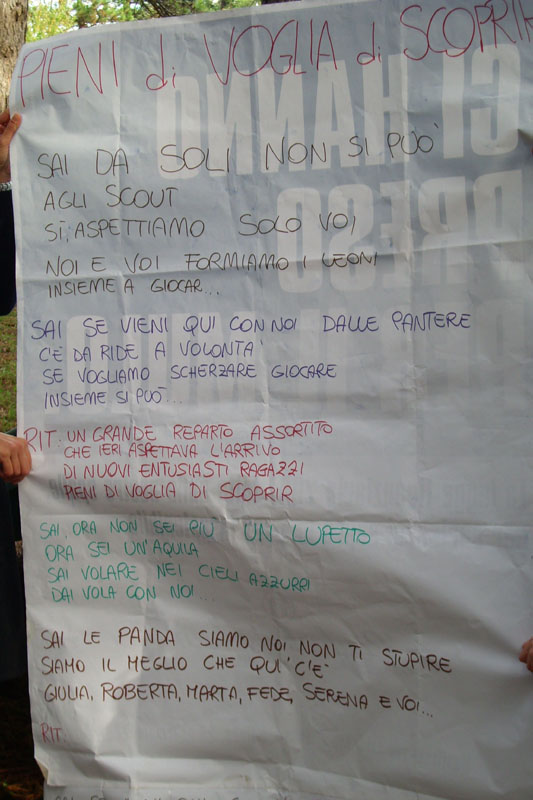 PIENI di VOGLIA di SCOPRIR
SAI DA SOLI NON SI PUO'
AGLI SCOUT
SI, ASPETTIAMO SOLO VOI
NOI E VOI FORMIAMO I LEONI
INSIEME A GIOCAR...
SAI SE VIENI QUI CON NOI DALLE PANTERE
C'È DA RIDE A VOLONTA'
SE VOGLIAMO SCHERZARE GIOCARE
INSIEME SI PUÒ...
RIT: UN GRANDE REPARTO ASSORTITO
CHE IERI ASPETTAVA L'ARRIVO
DI NUOVI ENTUSIASTI RAGAZZI
PIENI DI VOGLIA DI SCOPRIR
SAI, ORA NON SEI PIU' UN LUPETTO
ORA SEI UN'AQUILA
SAI VOLARE NEI CIELI AZZURRI
DAI VOLA CON NOI...
SAI LE PANDA SIAMO NOI NON TI STUPIRE
SIAMO IL MEGLIO CHE QUI C'È
GIULIA, ROBERTA, MARTA, FEDE, SERENA E VOI...
RIT.
CI HANNO
PRESO